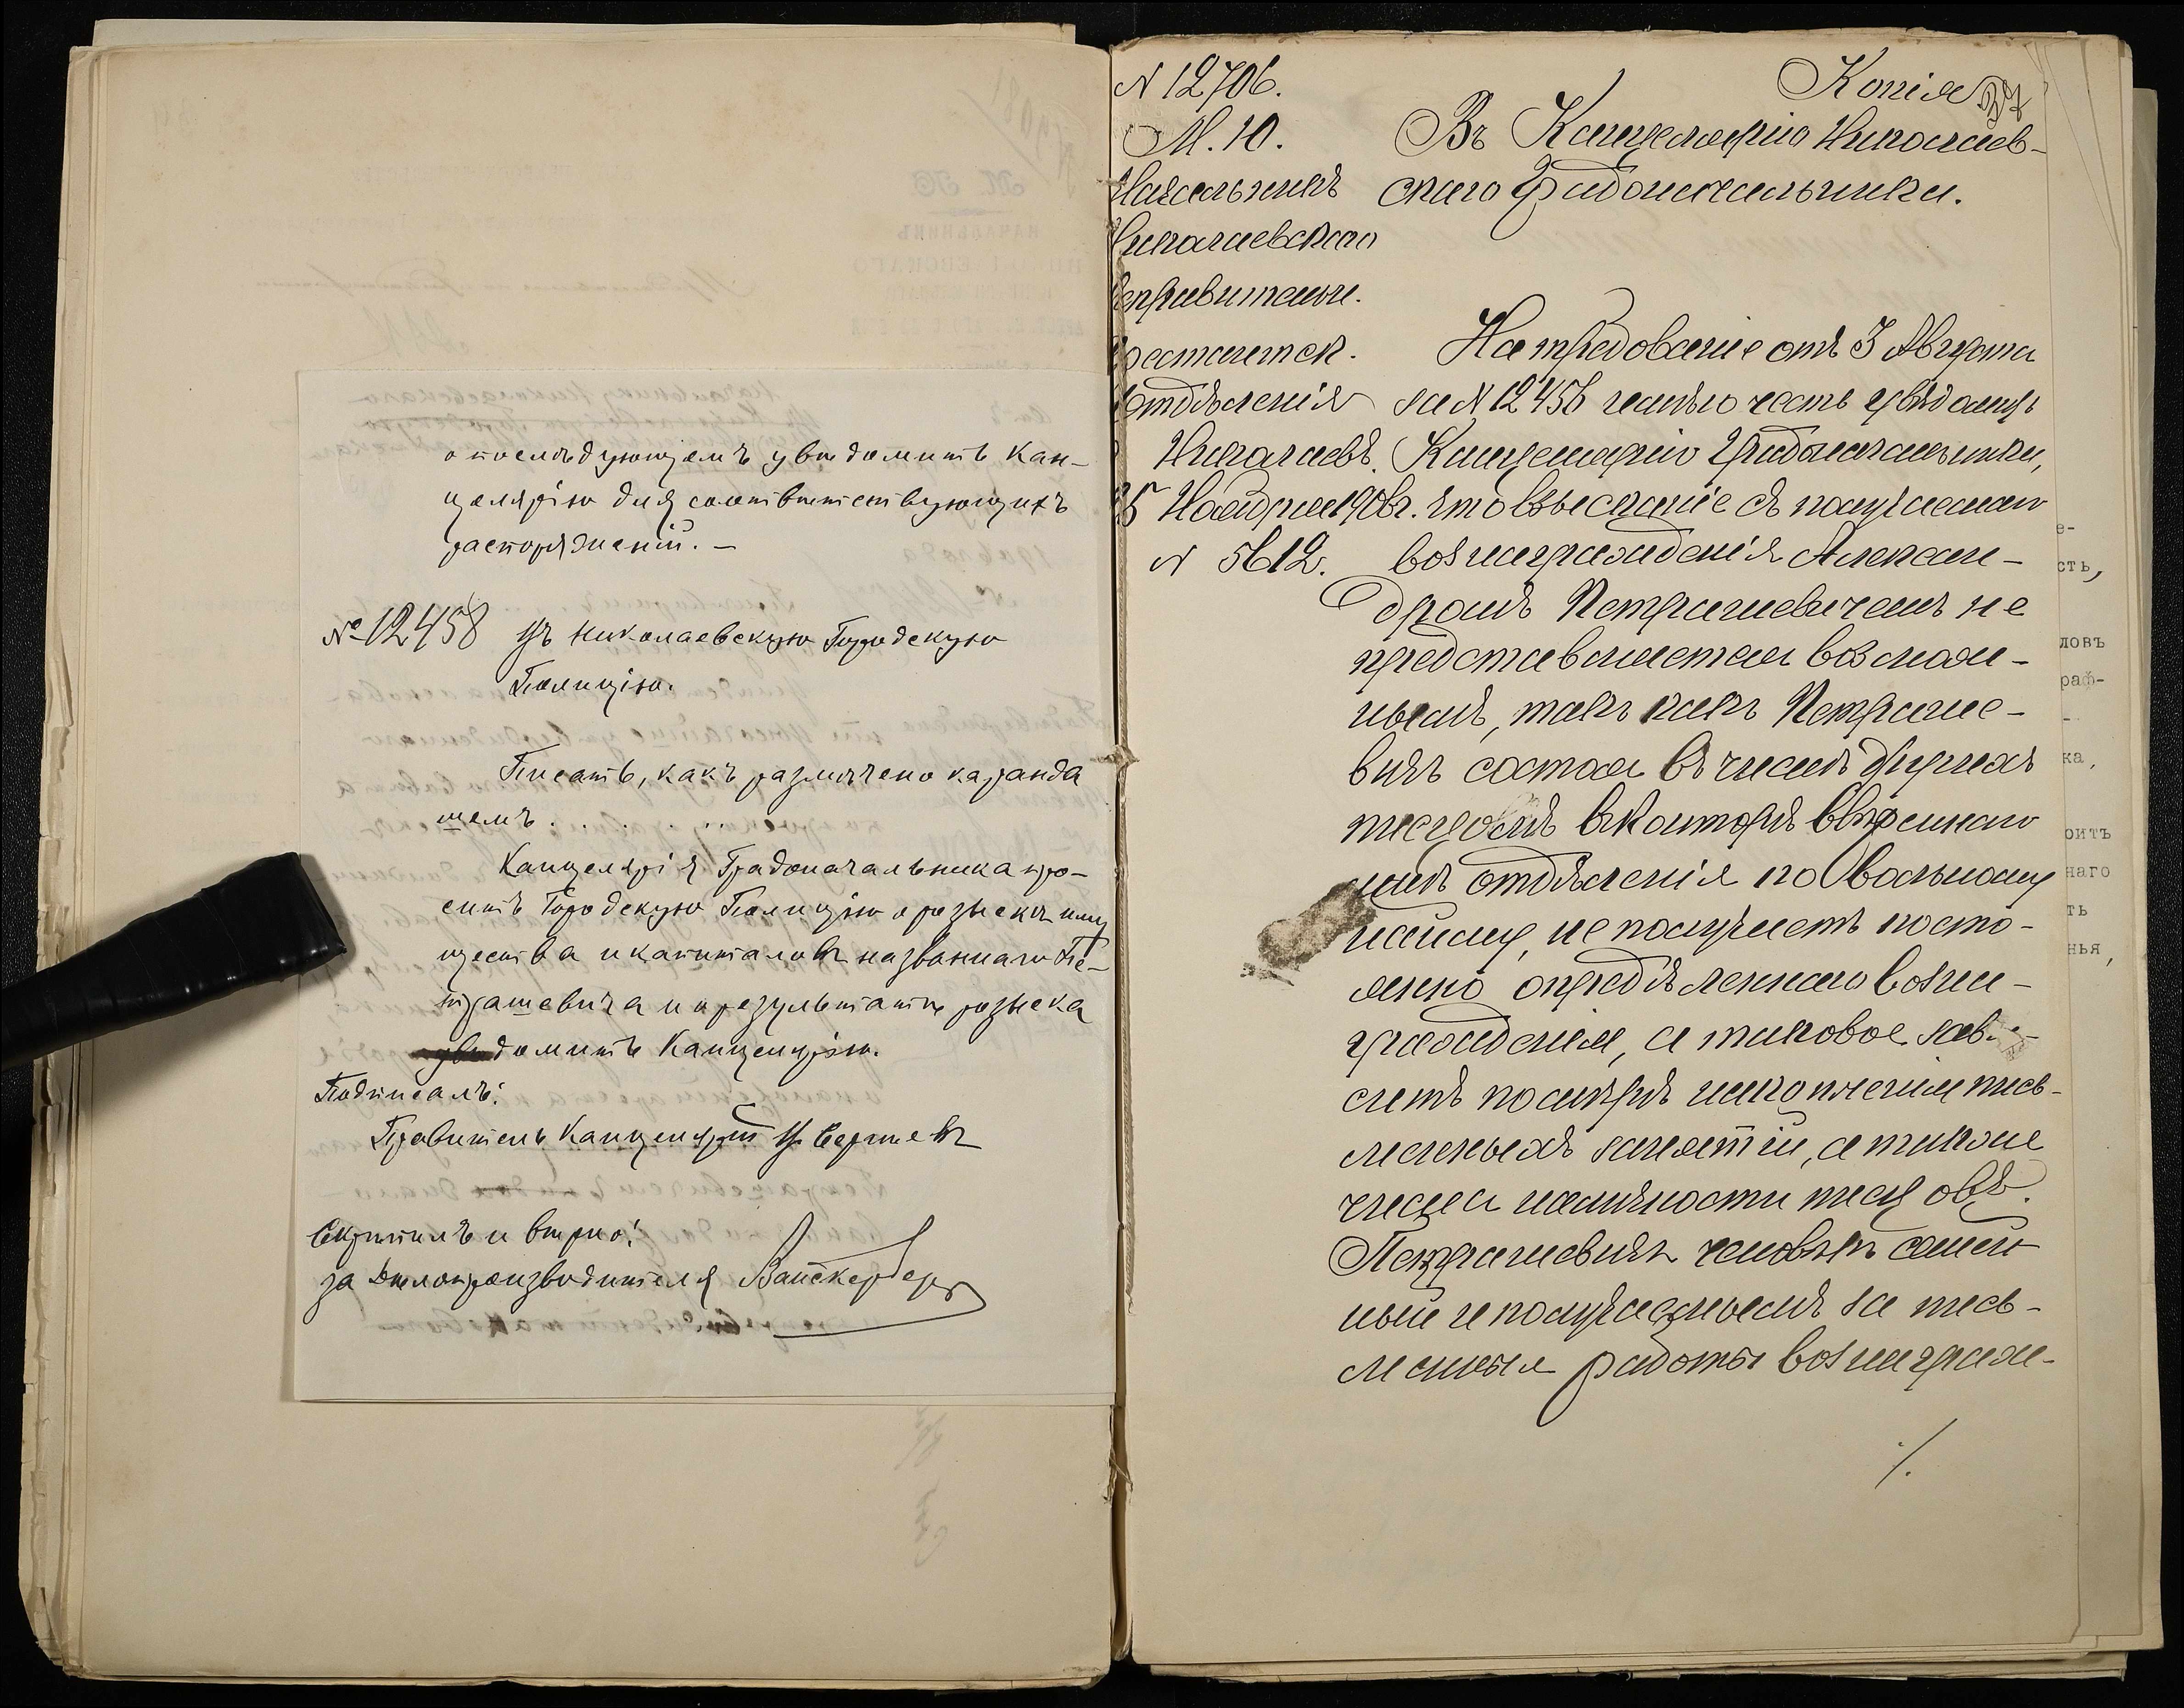 о послѣдующемъ увѣдомить Кан-
целярію для соотвѣтствующихъ
распоряженій. –
№ 12458 Въ Николаевскую Городскую
Полицію.
Писать, какъ размѣчено каранда
шемъ . . . . . .
Канцелярія Градоначальника про-
ситъ Городскую Полицію о розыскѣ иму
щества и капиталовъ названнаго Пе-
трашевича и о результатѣ розыска
увѣдомить Канцелярію.
Подписалъ:
Правитель Канцеляріи
Скрѣпилъ и вѣрно:
за Дѣлопроизводителя
Копія
37
N 12706.
М. Ю.
Начальникъ
Николаевскаго
исправительн.
арестантск.
отдѣленія
Николаевъ.
1908г.
N 5612.
Въ Канцелярію Николаев-
скаго Градоначальника.
На требованіе отъ 3 Августа
за N 12456 имѣю честь увѣдомить
Канцелярію Градоначальника,
что взысканіе съ получаемаго
вознагражденія Алексан-
дромъ Петрашевичемъ не
представляется возмож-
нымъ, такъ какъ Петраше-
вичъ состоя въ числѣ другихъ
писцовъ въ конторѣ ввѣреннаго
мнѣ отдѣленія по вольному
найму, не получаетъ посто-
янно опредѣленнаго возна-
гражденія, а таковое зави-
ситъ по мѣрѣ накопленія пись-
менныхъ занятій, а также
числа наличности писцовъ.
Петрашевичъ человѣкъ семей
ный и получаемымъ за пись-
менныя работы вознаграж-
./.
е-
сть,
ловъ
раф-
-
ка,
оитъ
наго
ть
нья,